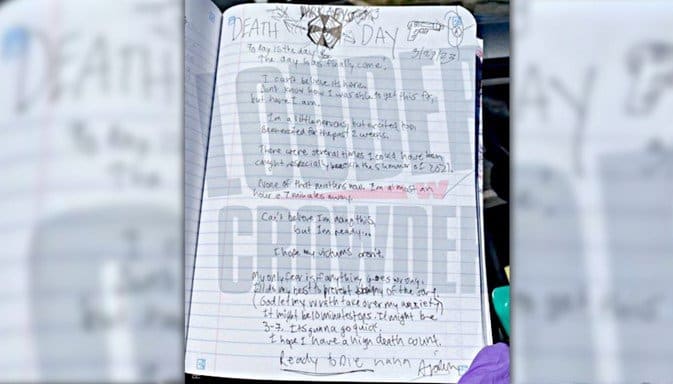 DARK ABYSS
DEATH DAY
3/27/23
Today is the day
The day has finally come.
I can't believe its here.
Dont know how I was able to get this far,
but here I am.
I'm a little nervous, but excited too.
Been excited for the past 2 weeks.
There were several times I could have been
caught especially back in the summer of 2021.
None of that matters now. I'm almost an
hour & 7 minutes away.
Can't believe I'm doing this,
but I'm ready...
I hope my victims aren't.
My only fear is if anything goes wrong.
I'll do my best to prevent any of the sort.
(God let my wrath take over my anxiety)
It might be 10 minutes tops. It might be
3-7. Its gunna go quick.
I hope I have a high death count.
Ready to Die haha
LOUDER
W
CROWDER